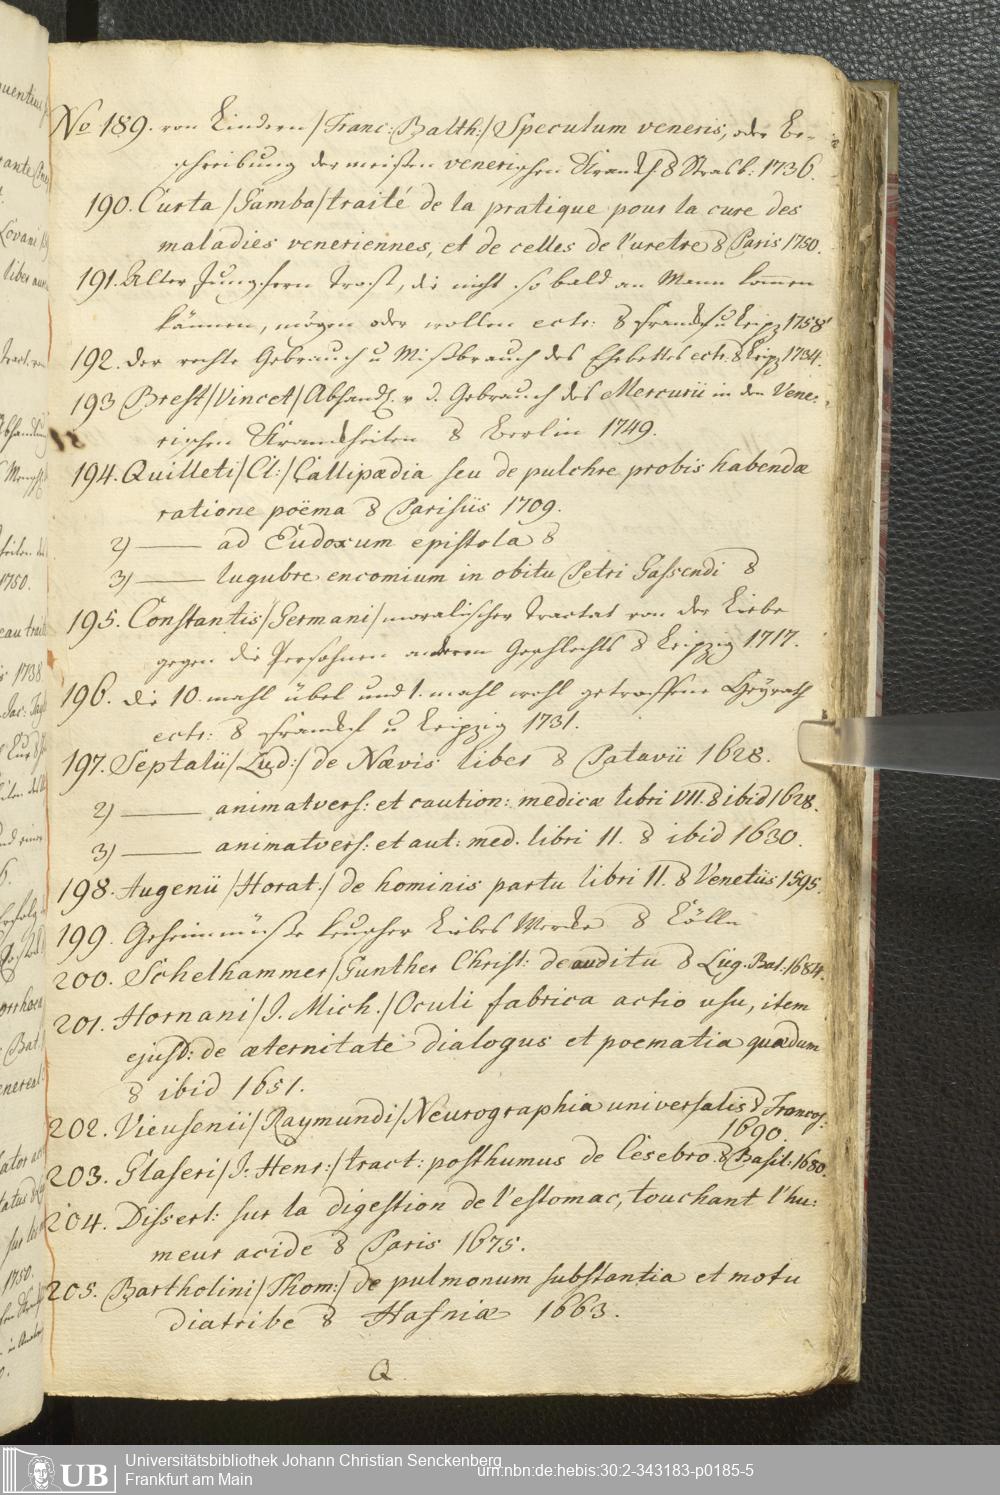 No 189. von Lindern /Franc: Balth:/ Speculum veneris, oder Be-
schreibung der meisten venerischen Krankh. 8 Strasb: 1736.
190. Custa /Gamba/ traité de la pratique pour la cure des
maladies veneriennes, et de celles de l'uretre 8 Paris 1750.
191. Alter Jungfern Trost, die nicht so bald an Mann kom̅en
können, mögen oder wollen ectr: 8 Franckf u Leipz 1758
192. der rechte Gebrauch u Mißbrauch des Ehebettes ectr. 8 Leipz 1734.
193 Brest /Vincet/ Abhandl. v d. Gebrauch des Mercurii in den Vene-
rischen Krankheiten 8 Berlin 1749.
194. Quilleti /Cl:/ Callipædia seu de pulchre probis habendæ
ratione poëma 8 Parisiis 1709.
2) —— ad Eudoxum epistola 8
3) —— lugubre encomium in obitu Petri Gassendi 8
195. Constantis /Germani/ moralischer Tractat von der Liebe
gegen die Persohnen anderen Geschlechts 8 Leipzig 1717.
196. die 10. mahl übel und 1. mahl wohl getroffene Heyrath
ectr: 8 Franckf u Leipzig 1731.
197. Septalii /Lud:/ de Nævis liber 8 Patavii 1628.
2) —— animatvers: et caution: medicæ libri VII. 8 ibid 1628.
3) —— animatvers: et aut: med. libri 11. 8 ibid 1630.
198. Augenii /Horat./ de hominis partu libri 11. 8 Venetiis 1595.
199. Geheimnüße keuscher Liebes Werke 8 Cölln
200. Schelhammer /Gunther Christ: de auditu 8 Lug. Bat. 1684.
201. Hornani /J. Mich./ Oculi fabrica actio usu, item
ejusd: de æternitate dialogus et poematia quædum
8 ibid 1651.
202. Vieusenii /Raymundi/ Neurographia universalis 8 Francof:
1690.
203. Glaseri /J: Henr:/ tract: posthumus de Cesebro. 8 Basil: 1680.
204. Dissert: sur la digestion de l'estomac, touchant l'hu:
meur acide 8 Paris 1675.
205. Bartholini /Thom:/ de pulmonum substantia et motu
diatribe 8 Hafniæ 1663.
Q
Universitätsbibliothek Johann Christian Senckenberg
Frankfurt am Main
urn:nbn:de:hebis:30:2-343183-p0185-5
UB